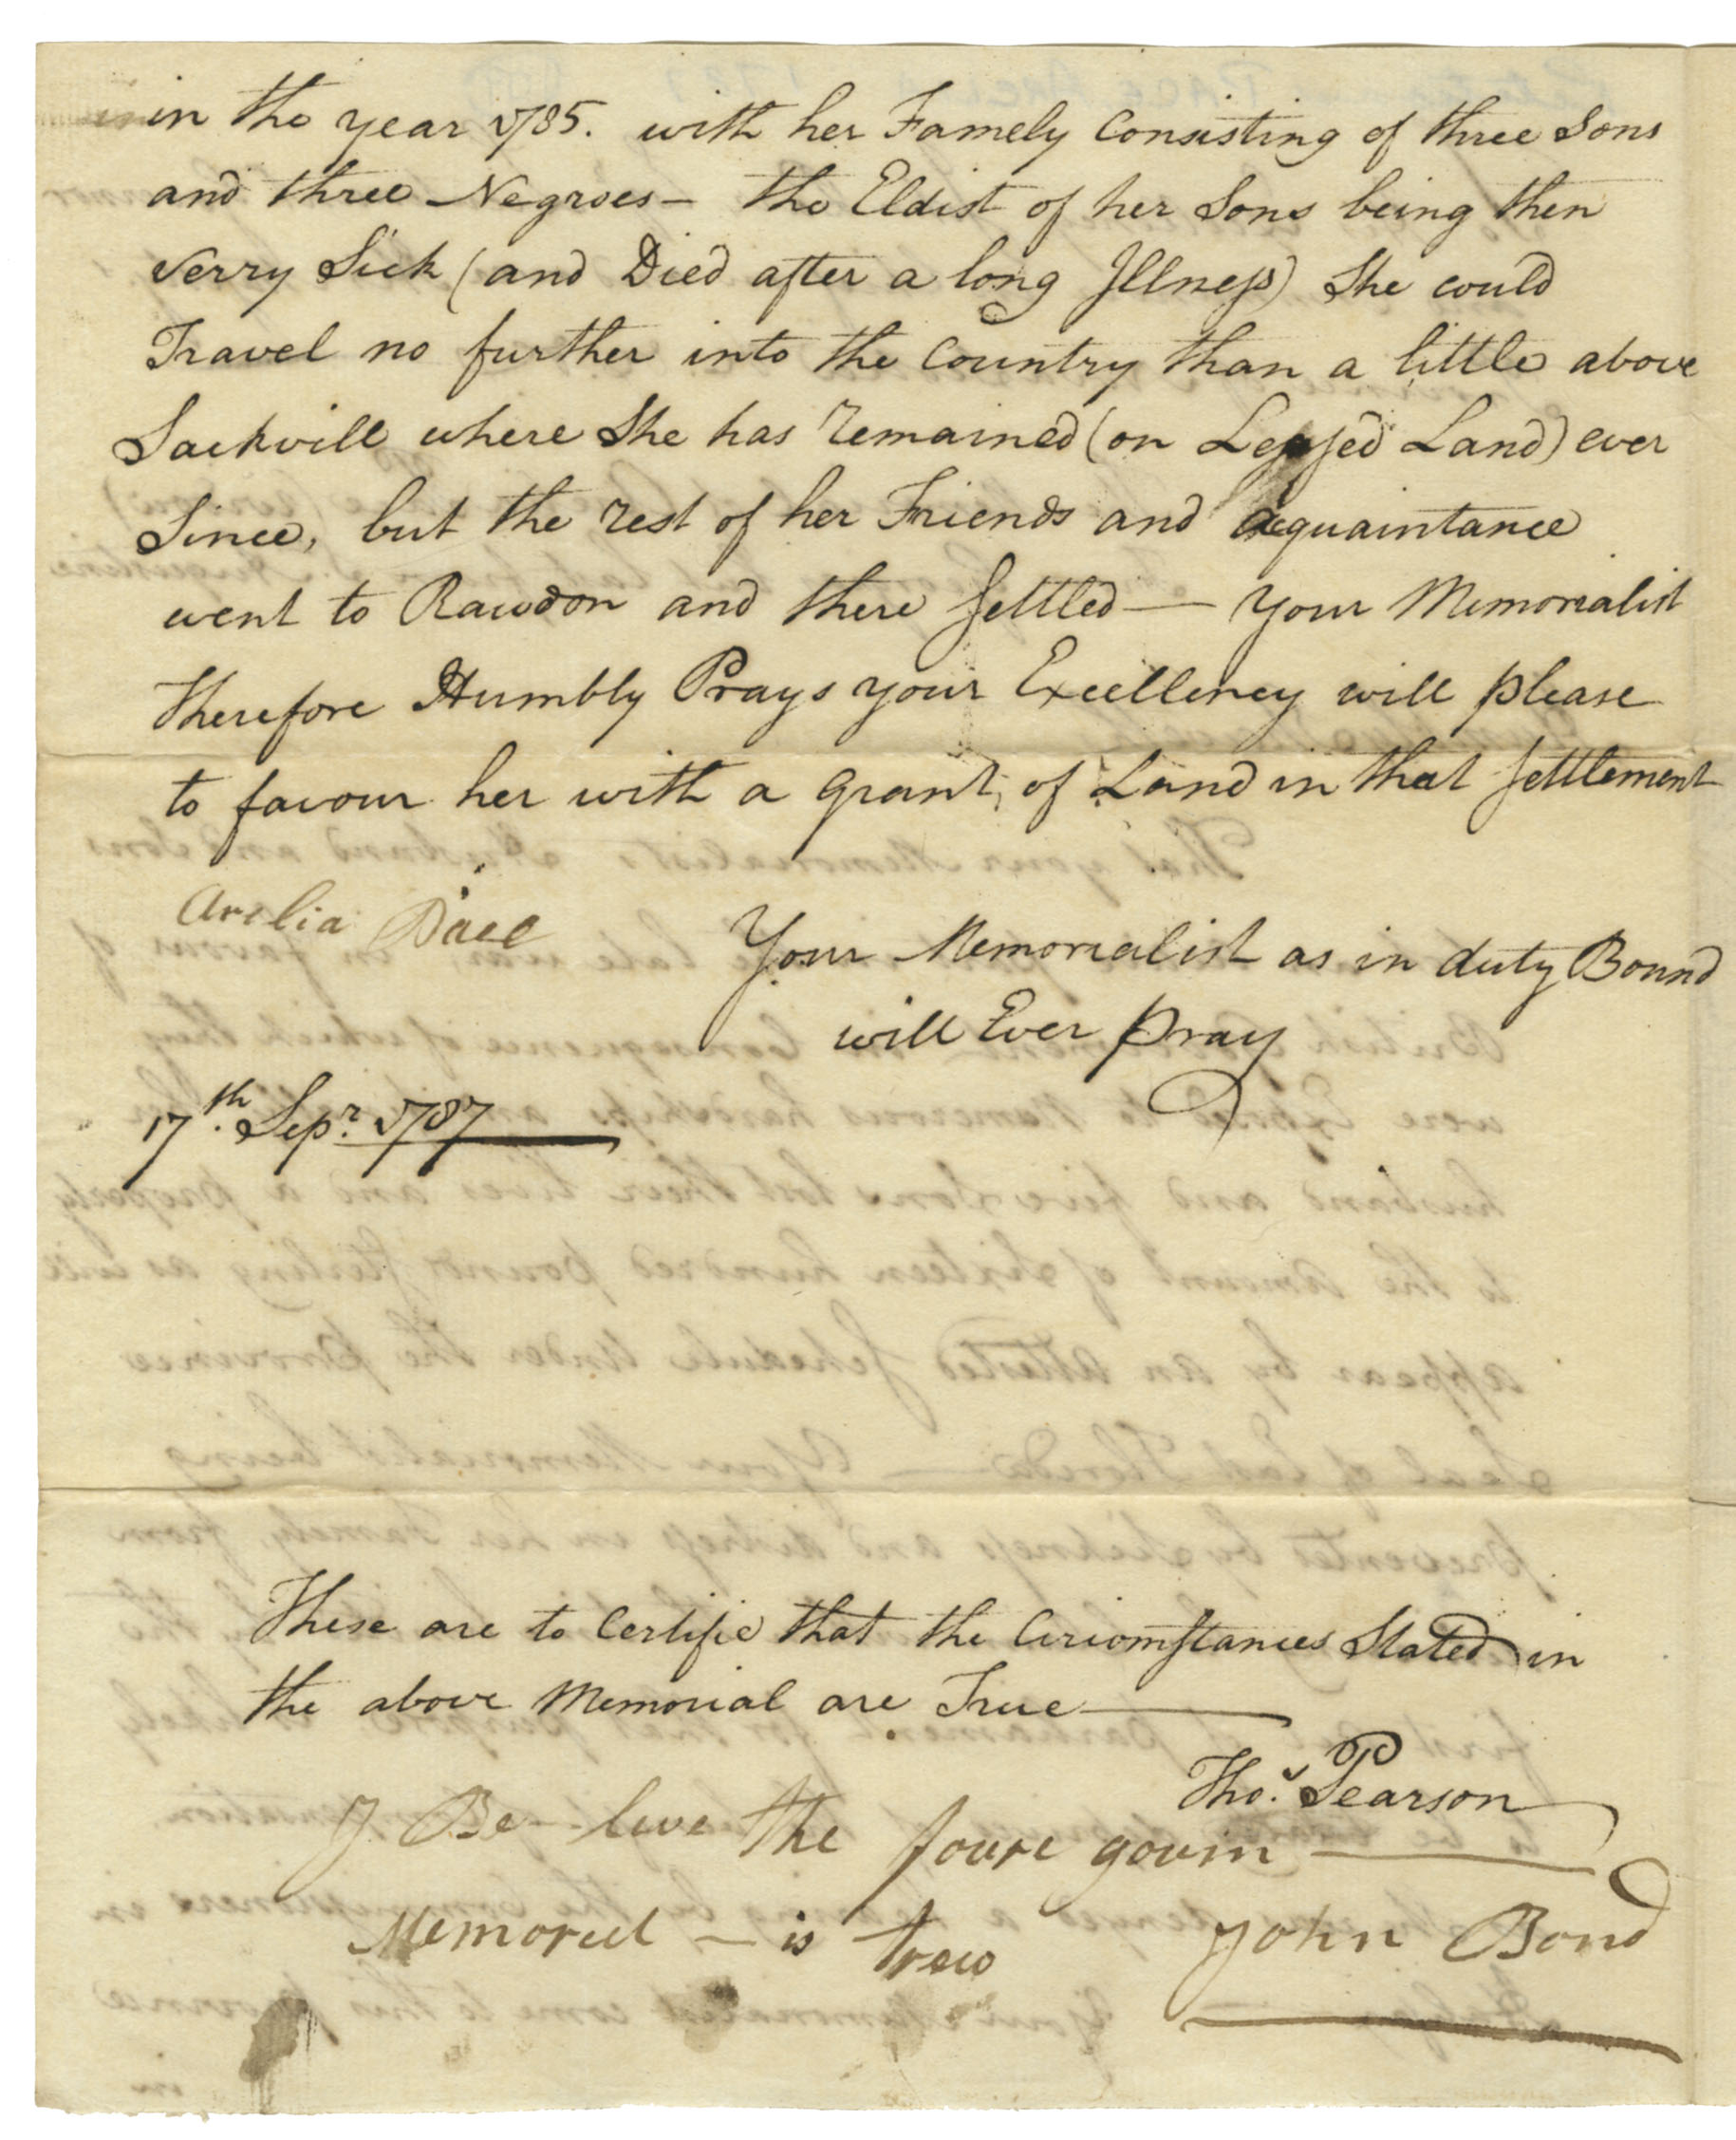 in the year 1785. with her Famely Consisting of three Sons
and three Negroes – the Eldist of her Sons being then
Verry Sick (and Died after a long Illness) She could
Travel no further into the Country than a little above
Sackvill where She has remained (on Leased Land) ever
Since, but the rest of her Friends and acquaintance
went to Rawdon and there Settled — your Memorialist
therefore Humbly Prays your Excellency will please
to favour her with a grant of Land in that Settlement
Your Memorialist as in duty Bound
will Ever pray
17th. Sepr. 1787
These are to Certifie that the Circomstances Stated in
the above Memorial are True —
Thos. Pearson
I Be-leve the foure gouin —
Memorul – is trew
John Bond